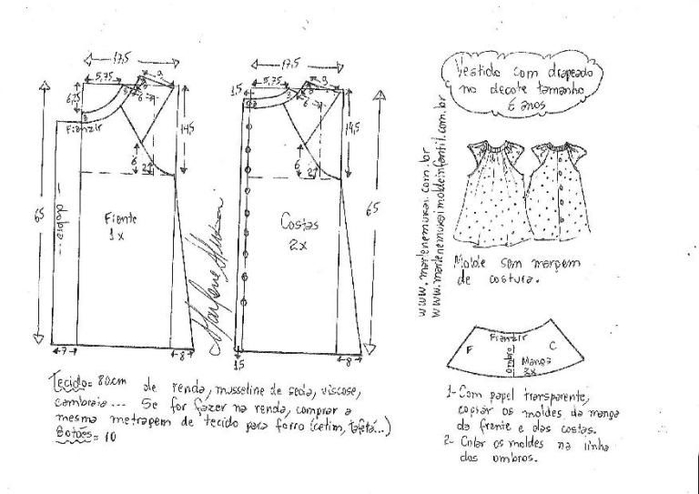 17,5
5,75
3
6,75
3
6
Franzir
14,5
65
dobra
6
2
Frente
1x
7
8
17,5
1,5
5,75
3
6
14,5
65
6
2
Costas
2x
1,5
8
Marlene Mukai
Vestido com drapeado
no decote tamanho
6 anos
www.marlenemukai.com.br
www.marlenemukaimoldeinfantil.com.br
Molde sem margem
de costura.
Franzir
F
C
ombro
Manga
2x
Tecido = 80cm de renda, musseline de seda, viscose,
cambraia... Se for fazer na renda, comprar a
mesma metragem de tecido para forro (cetim, tafetá...)
Botões = 10
1- Com papel transparente,
copiar os moldes da manga
da frente e das costas.
2- Colar os moldes na linha
dos ombros.